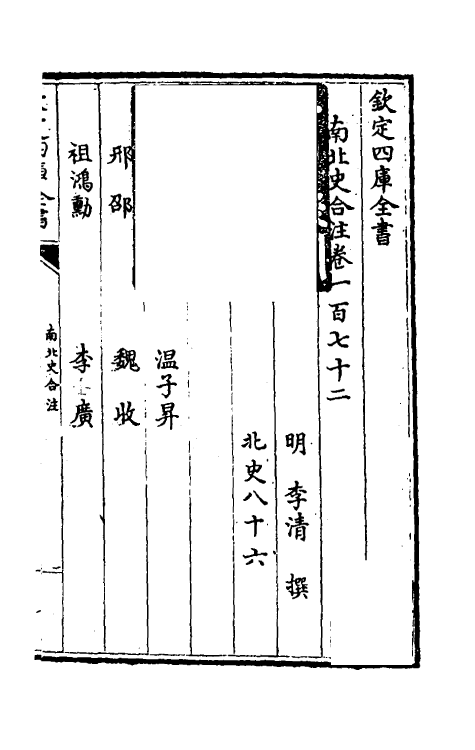 欽定四庫全書
南北史合注卷一百七十二
明 李清 撰
北史八十六
温子昇
邢邵
魏收
祖鴻勳
李廣
南北史合注